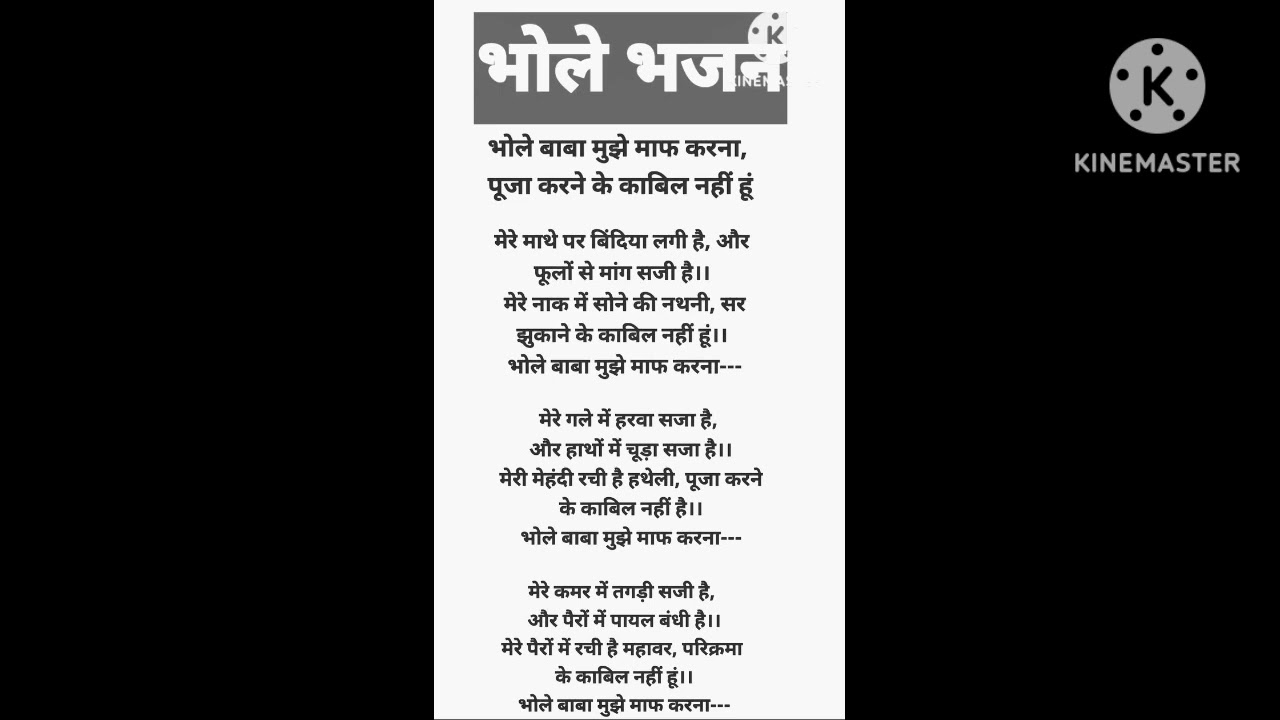 भोले भजन
KINEMASTER
भोले बाबा मुझे माफ करना,
पूजा करने के काबिल नहीं हूं
मेरे माथे पर बिंदिया लगी है, और
फूलों से मांग सजी है।।
मेरे नाक में सोने की नथनी, सर
झुकाने के काबिल नहीं हूं।।
भोले बाबा मुझे माफ करना---
मेरे गले में हरवा सजा है,
और हाथों में चूड़ा सजा है।।
मेरी मेहंदी रची है हथेली, पूजा करने
के काबिल नहीं है।।
भोले बाबा मुझे माफ करना---
मेरे कमर में तगड़ी सजी है,
और पैरों में पायल बंधी है।।
मेरे पैरों में रची है महावर, परिक्रमा
के काबिल नहीं हूं।।
भोले बाबा मुझे माफ करना---